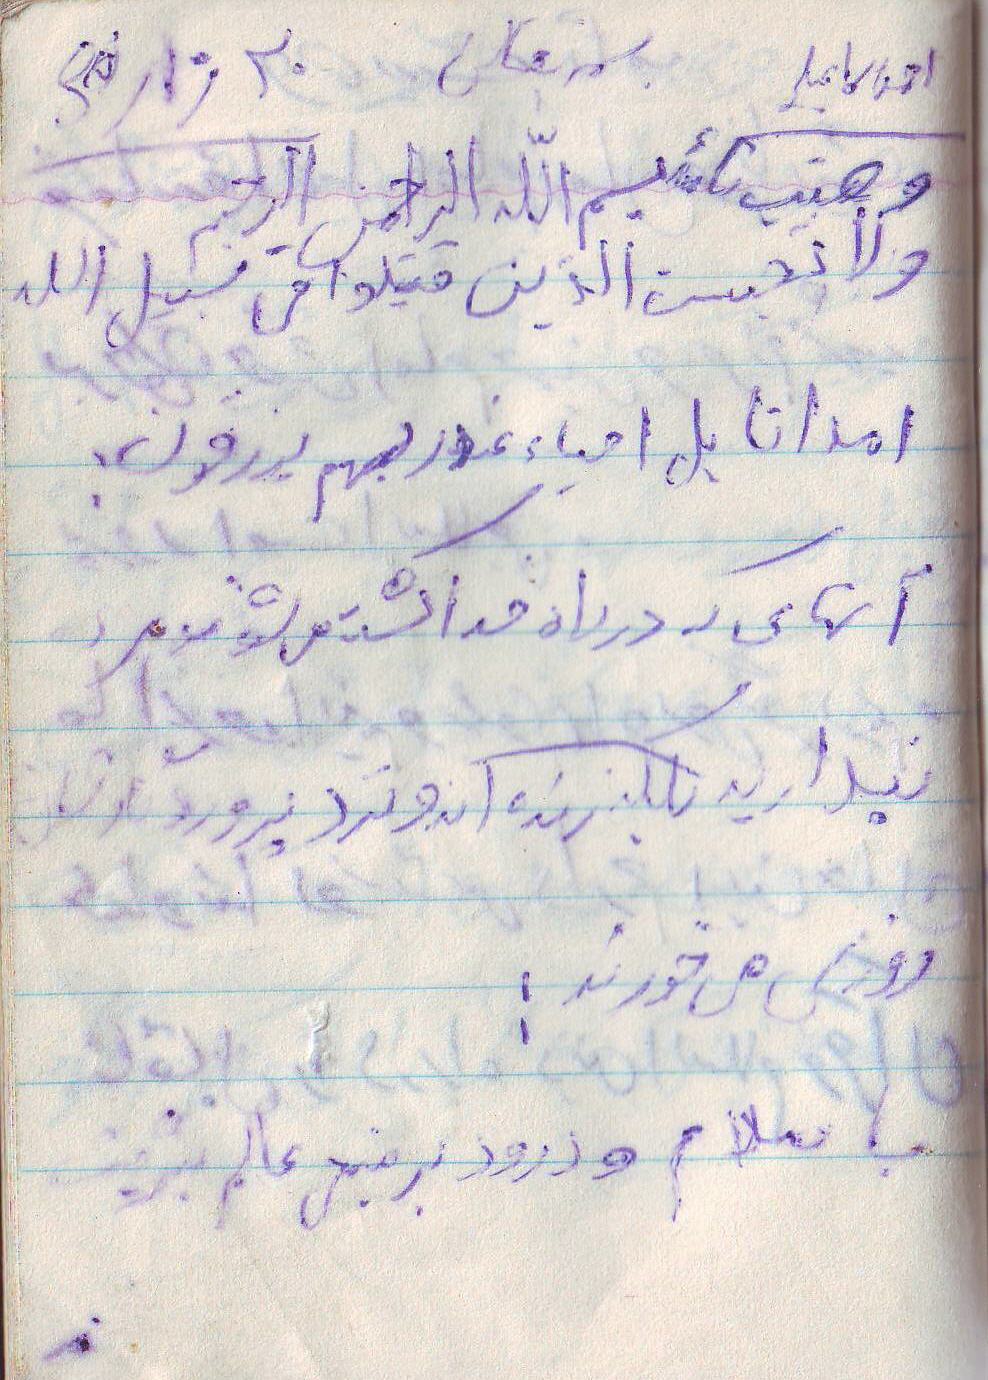 بسمه تعالی ۲۰
وصیت نامه بسم اللّه الرحمن الرحیم
ولا تحسبن الذین قتیلوا فی سبیل الله
امواتا بل احیاء عند ربهم یرزقون:
آنهای که در راه خدا کشته می‌شوند مرده
نپندارید بلکه زنده اند و نزد پروردگارشان
روزی می خورند!
با سلام و درود بر منجی عالم بشریت